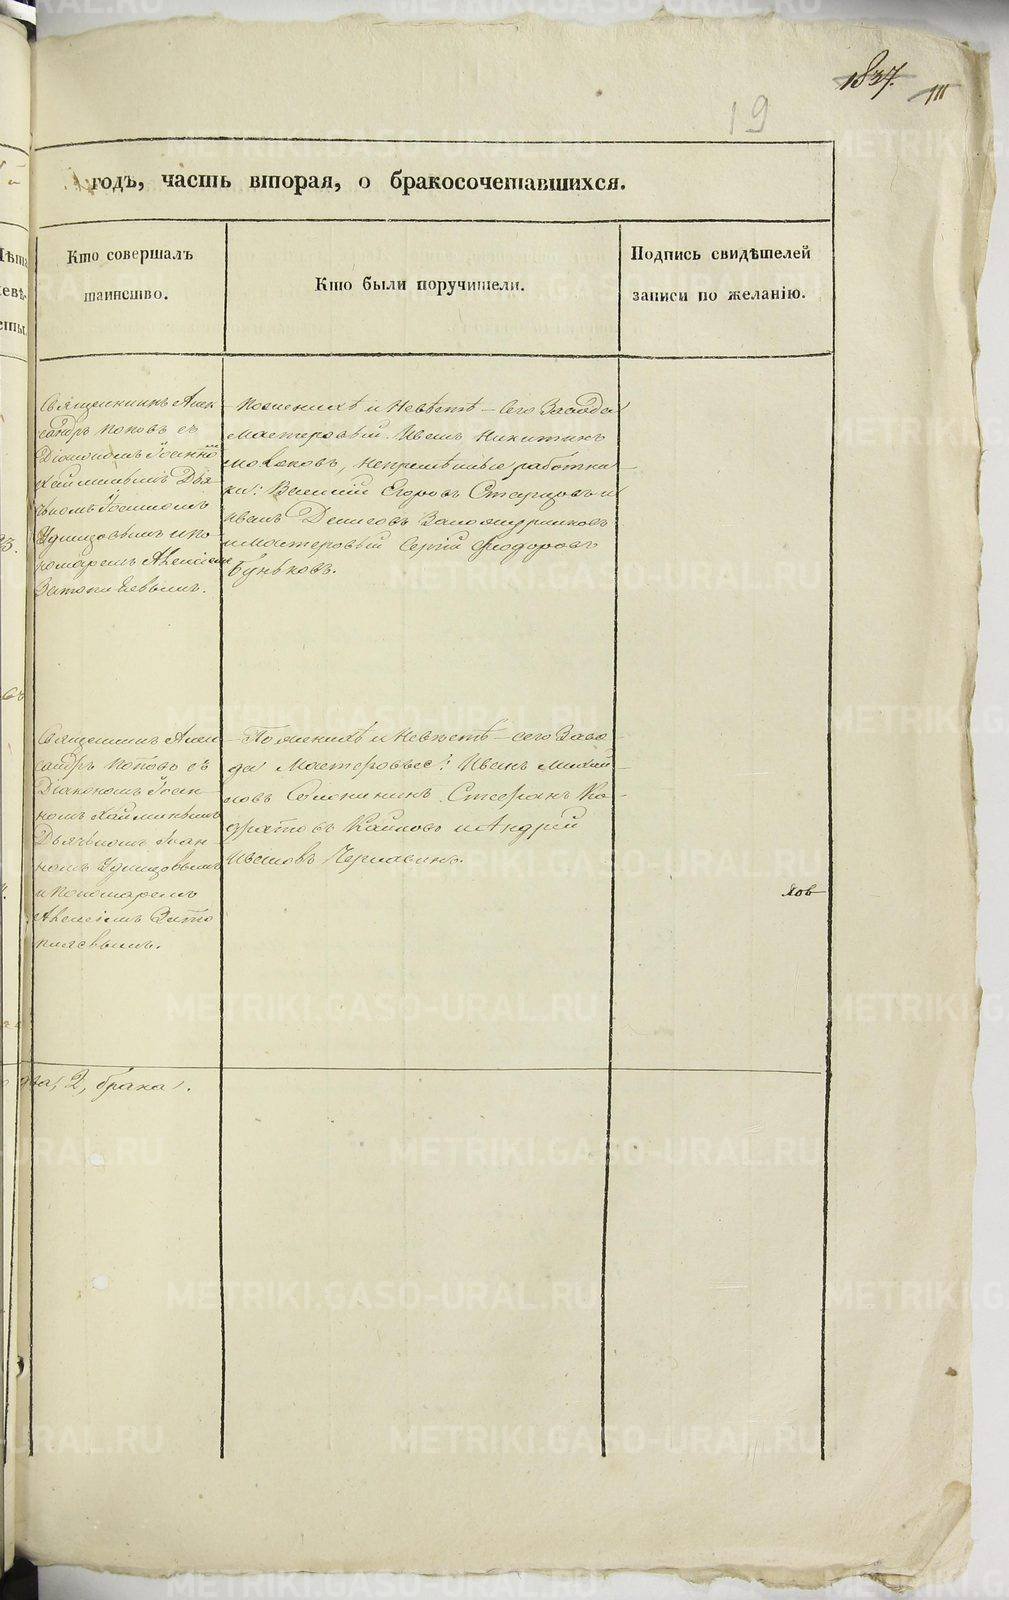 1837.
111
19
годъ, часть вторая, о бракосочетавшихся.
Кто совершалъ
таинство.
Кто были поручители.
Подпись свидѣтелей
записи по желанію.
Священникъ Алек
сандръ Поповъ съ
Діакономъ Іоанно
Хайминымъ Дья
Іоанномъ
Удинцовымъ и по
номаремъ Алексіем
По женихѣ и Невѣстѣ – Сего Завода
Мастеровый Иванъ Никитинъ
непремѣнные работни
ки: Василій Егоровъ Старцовъ и
Иванъ Денисовъ
и Мастеровый Сергій Феодоровъ
Буньковъ.
Священникъ Алек
сандръ Поповъ съ
Діакономъ Іоан
номъ Хайминымъ
Дьячкомъ Іоан
номъ Удинцовымъ
и Пономаремъ
Алексіемъ
По женихѣ и Невѣстѣ – сего Заво
да Мастеровые: Иванъ Михай
ловъ Стефанъ Ко
дратовъ и Андрей
Ивановъ
ков
два, 2, брака.
METRIKI.GASO-URAL.RU